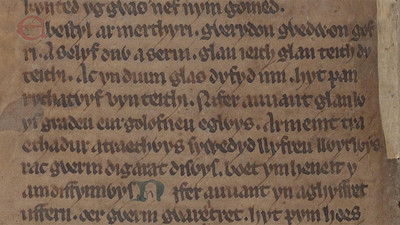 honted yg gỽas nef nym gomed.
Ebestyl a merthyri. gỽerydon gỽedỽon gof
ri. A selyf duỽ a serui. glan ieith glan teith dy
teithi. Ac ymduun glas dyfyd imi. hyt pan
rychatỽyf vyn teithi. Nifer auuant glanỽ
ys graden eurgolofneu eglỽys. Armeint tra
echadur atraethỽys syỽedyd llyfreu llỽyrỽys
rac gỽerin digarat disỽys. boet ym heneit y
amdiffynnỽys Nifer auuant yn aghyffret
uffern. oer gỽerin gỽaretret. hyt pym hoes